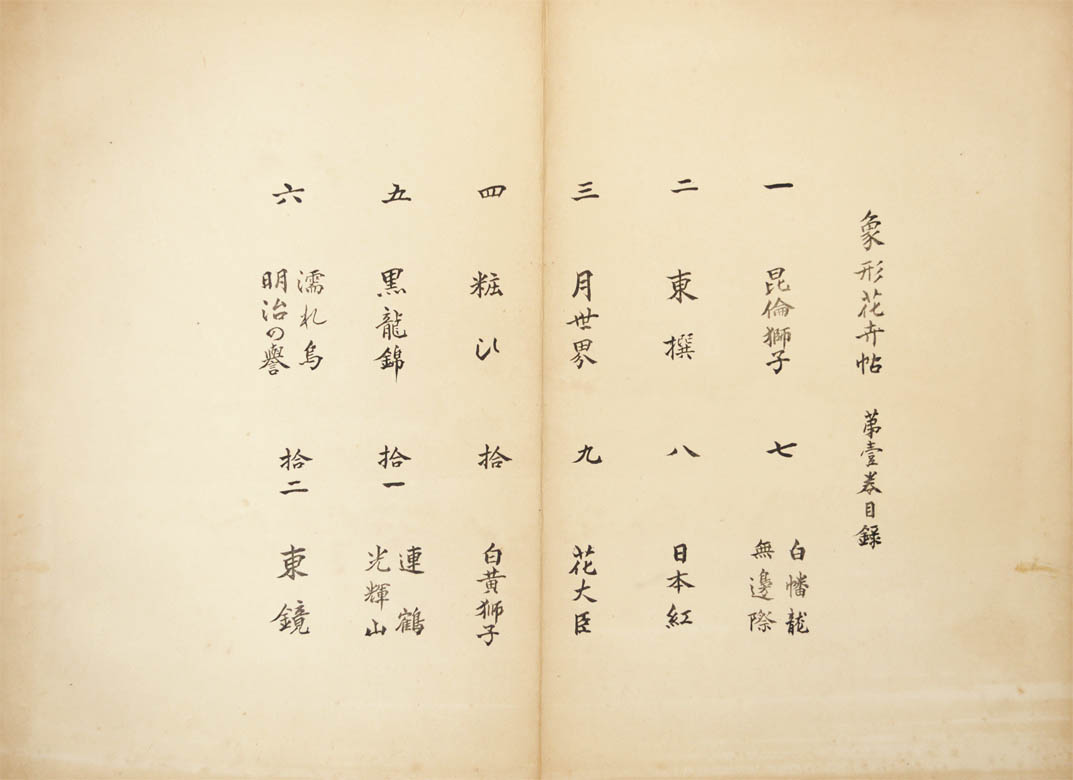 象形花卉帖 第壹巻目録
一 昆倫獅子
二 東撰
三 月世界
四 粧ひ
五 黒龍錦
六 濡れ烏
明治の譽
七 白幡龍
無邊際
八 日本紅
九 花大臣
拾 白黄獅子
拾一 連鶴
光輝山
拾二 東鏡